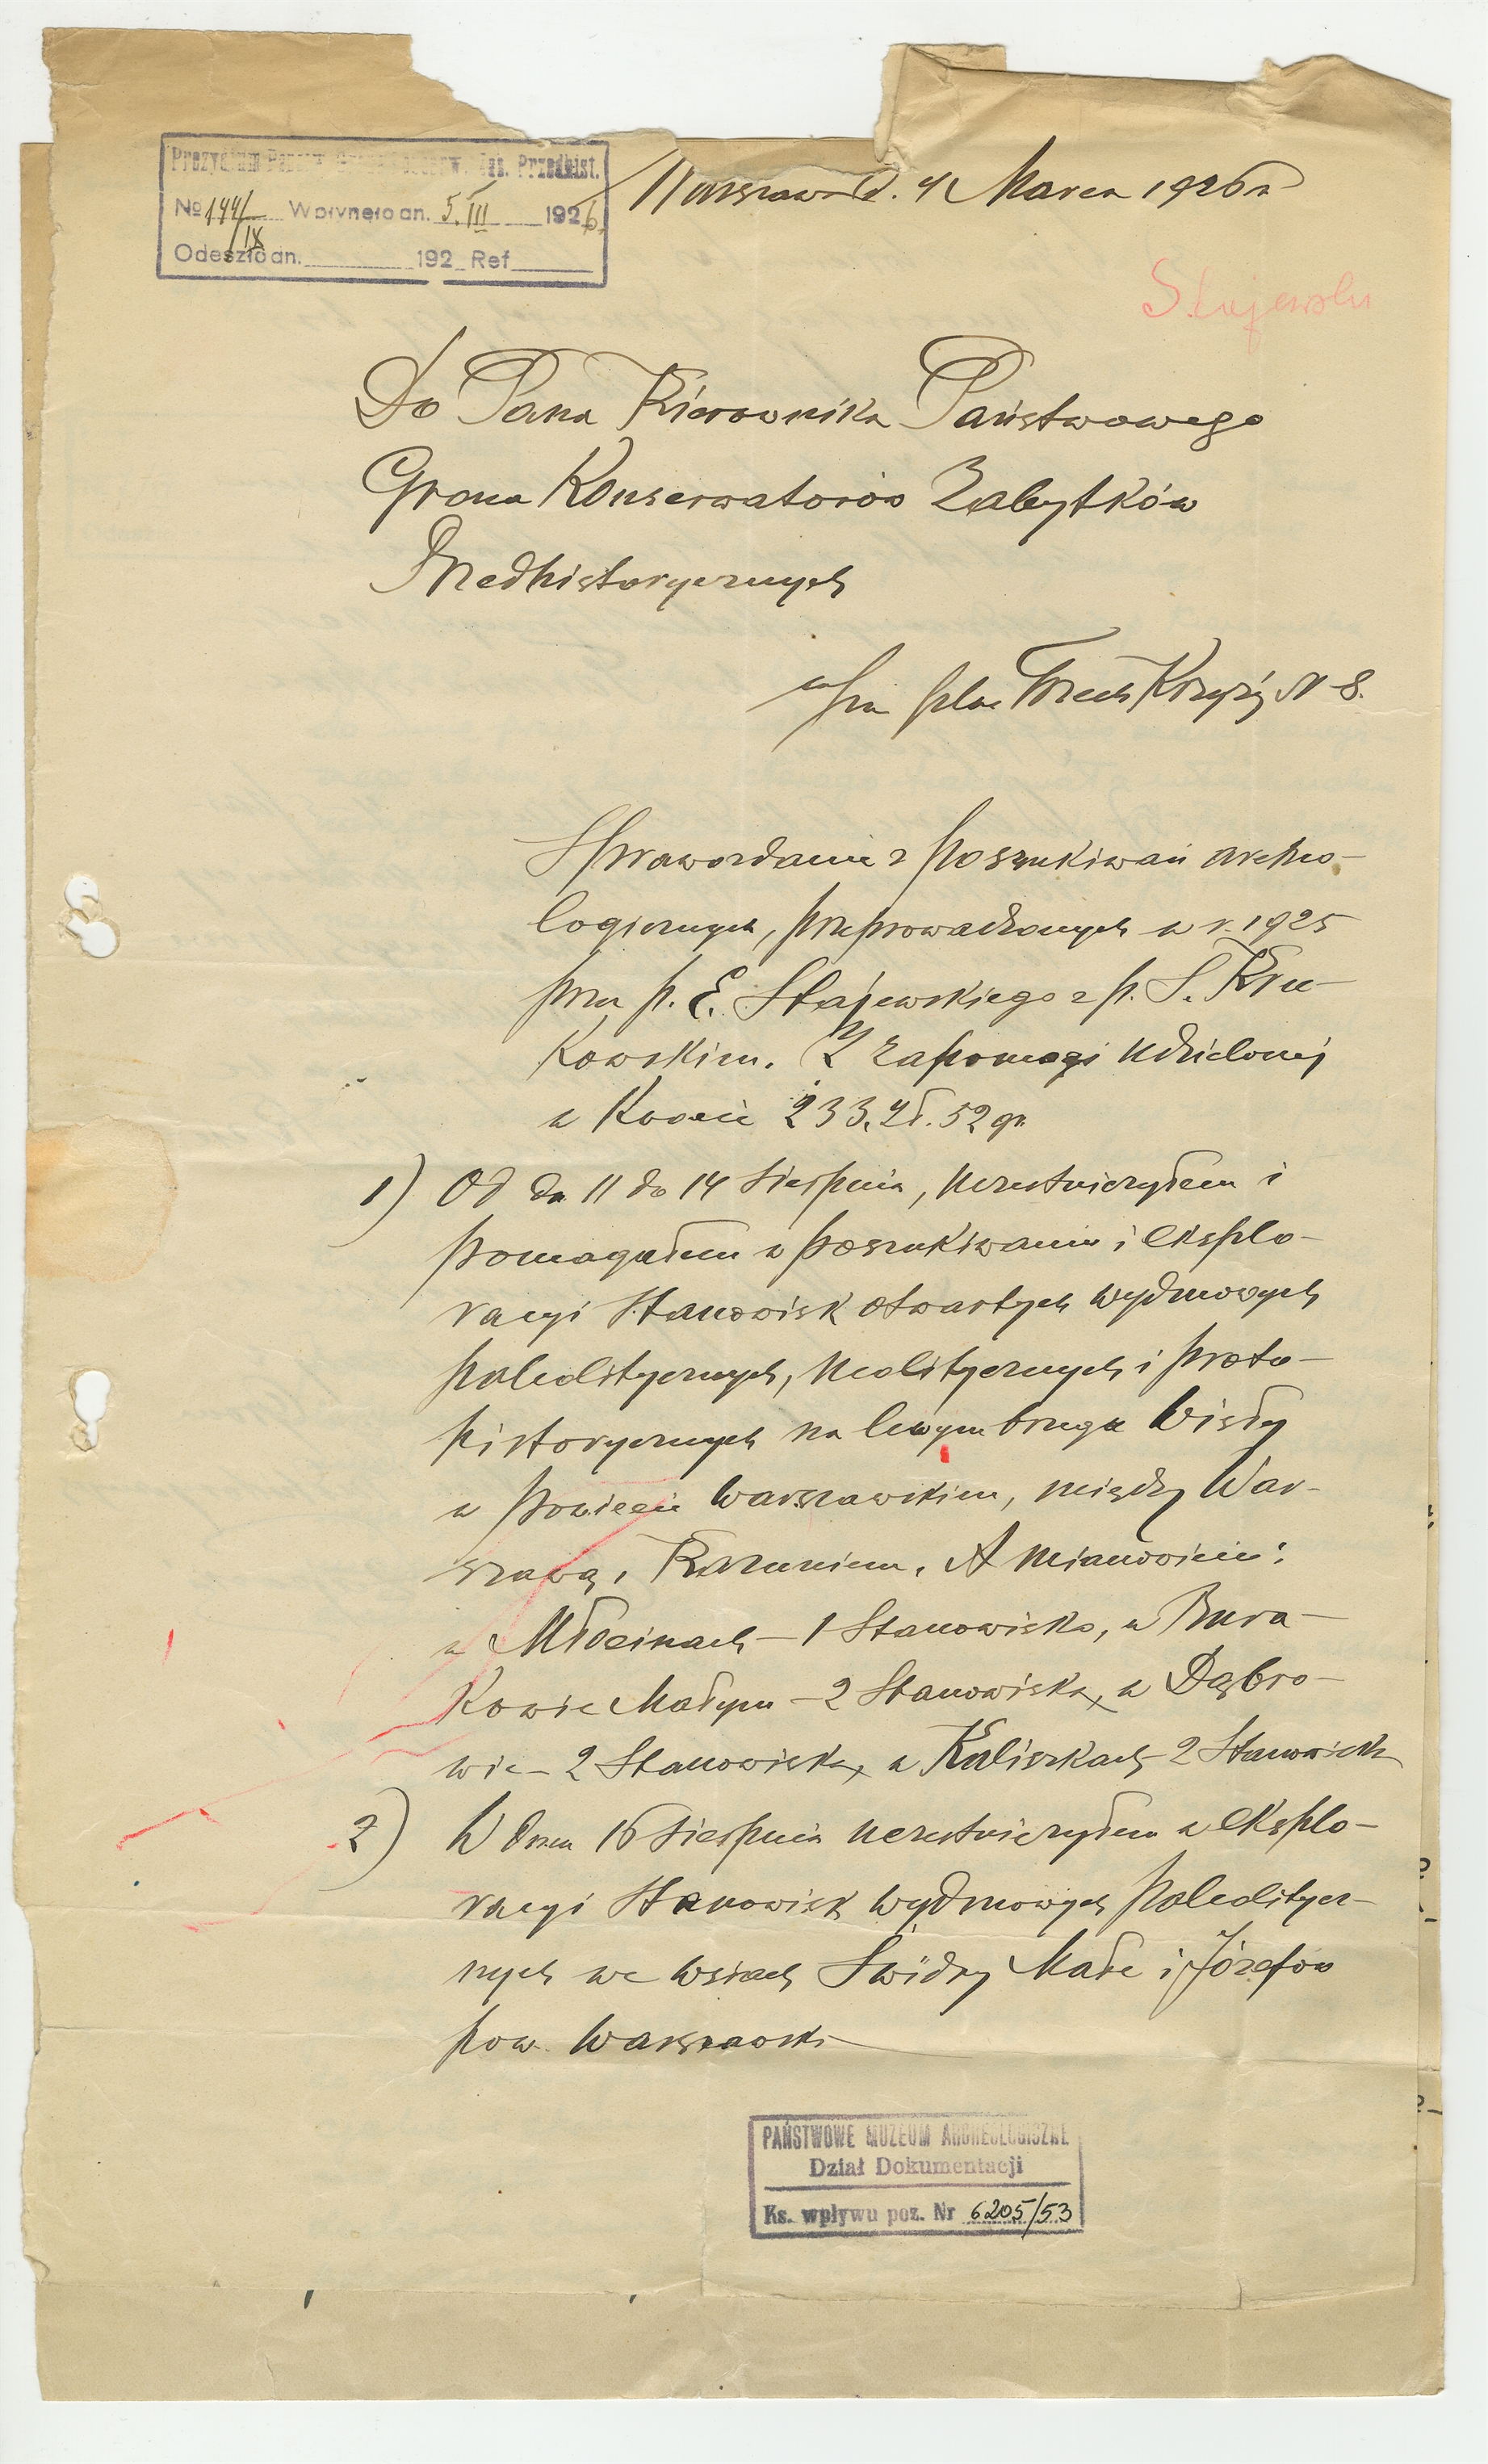 Prezydjum Państw. Grona Konserw. Zab. Przedhist.
No 144/IX Wpłynęło dn. 5. III 1926.
Odeszło dn. 192 Ref
Warszawa d. 4 Marca 1926 r
Stajewski
Do Pana Kierownika Państwowego
Grona Konserwatorów Zabytków
Przedhistorycznych
plac Trzech Krzyży N 8.
Sprawozdanie z poszukiwań archeo-
logicznych, przeprowadzonych w r. 1925
prze p. E. Stajewskiego z p. S. Kru-
kowskim. Z zapomogi udzielonej
w kwocie 233. zł. 52 gr.
1) Od dn 11 do 14 Sierpnia, uczestniczyłem i
pomagałem w poszukiwaniu i eksplo-
racyi Stanowisk otwartych wydmowych
paleolitycznych, neolitycznych i proto-
historycznych na lewym brzegu Wisły
w powiecie Warszawskiem, między War-
szawą, Kazuniem. A mianowicie:
w Młocinach - 1 Stanowisko, w Bura-
kowie Małym - 2 Stanowiska, w Dąbro-
wie - 2 Stanowiska, w Kaliszkach - 2 Stanowiska
2) W dniu 16 Sierpnia uczestniczyłem w eksplo-
racyi Stanowisk wydmowych paleolitycz-
nych we wsiach Świdry Małe i Józefów
pow. Warszawski
PAŃSTWOWE MUZEUM ARCHEOLOGICZNE
Dział Dokumentacji
Ks. wpływu poz. Nr 6205/53